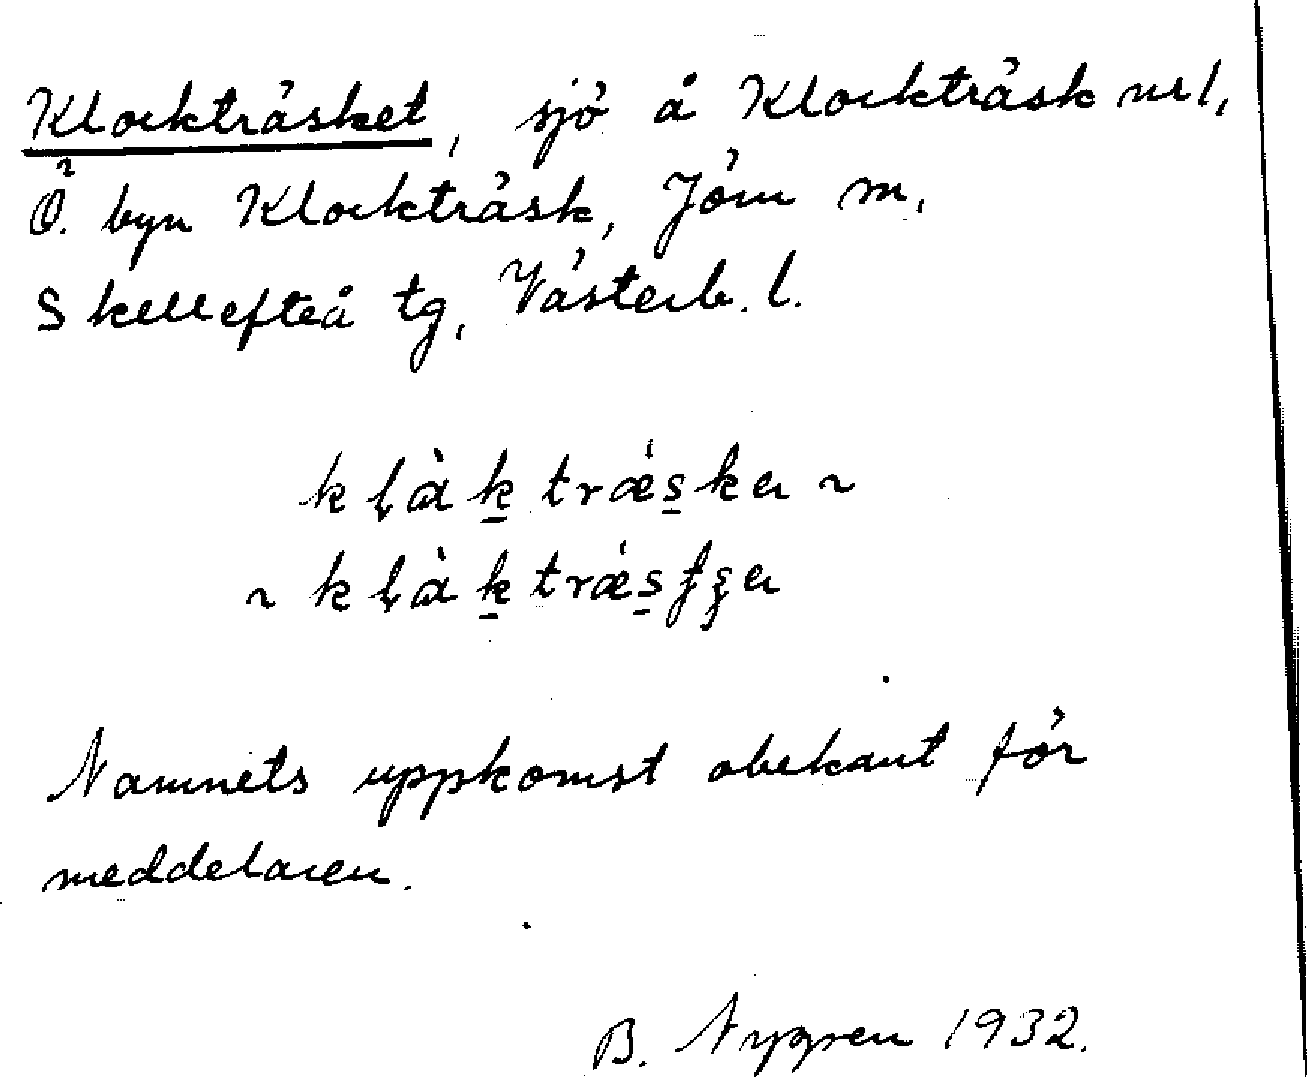 Klockträsket, sjö å Klockträsk nr 1,
Ö. byn Klockträsk, Jörn sn,
Skellefteå tg, Västerb. l.
Namnets uppkomst obekant för
meddelaren.
B. Nygren 1932.